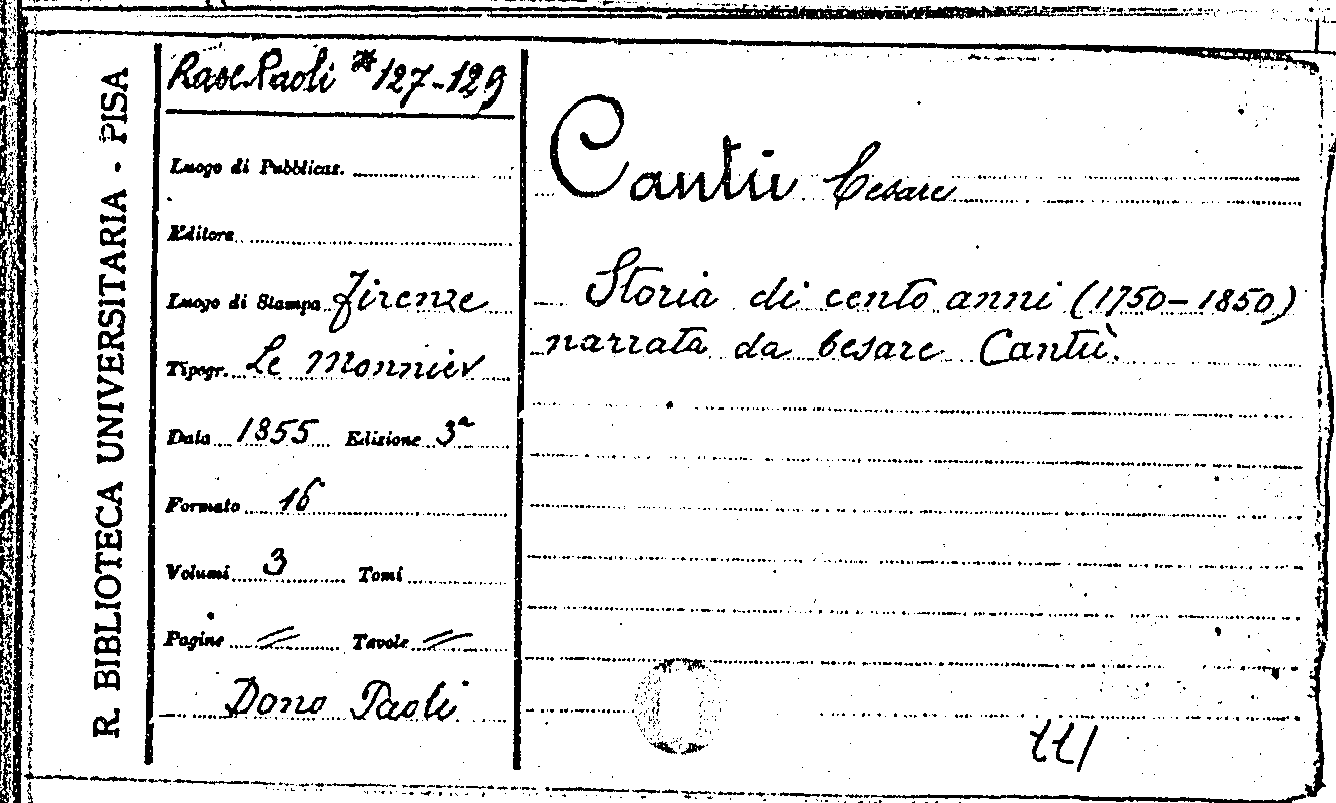 R. BIBLIOTECA UNIVERSITARIA - PISA
Rasc. Paoli * 127-129
Luogo di Pubblicaz.
Editore
Luogo di Stampa Firenze
Tipogr. Le Monnier
Data 1855 Edizione 3ª
Formato 16
Volumi 3 Tomi
Pagine // Tavole //
Dono Paoli
Cantù Cesare
Storia di cento anni (1750-1850)
narrata da Cesare Cantù.